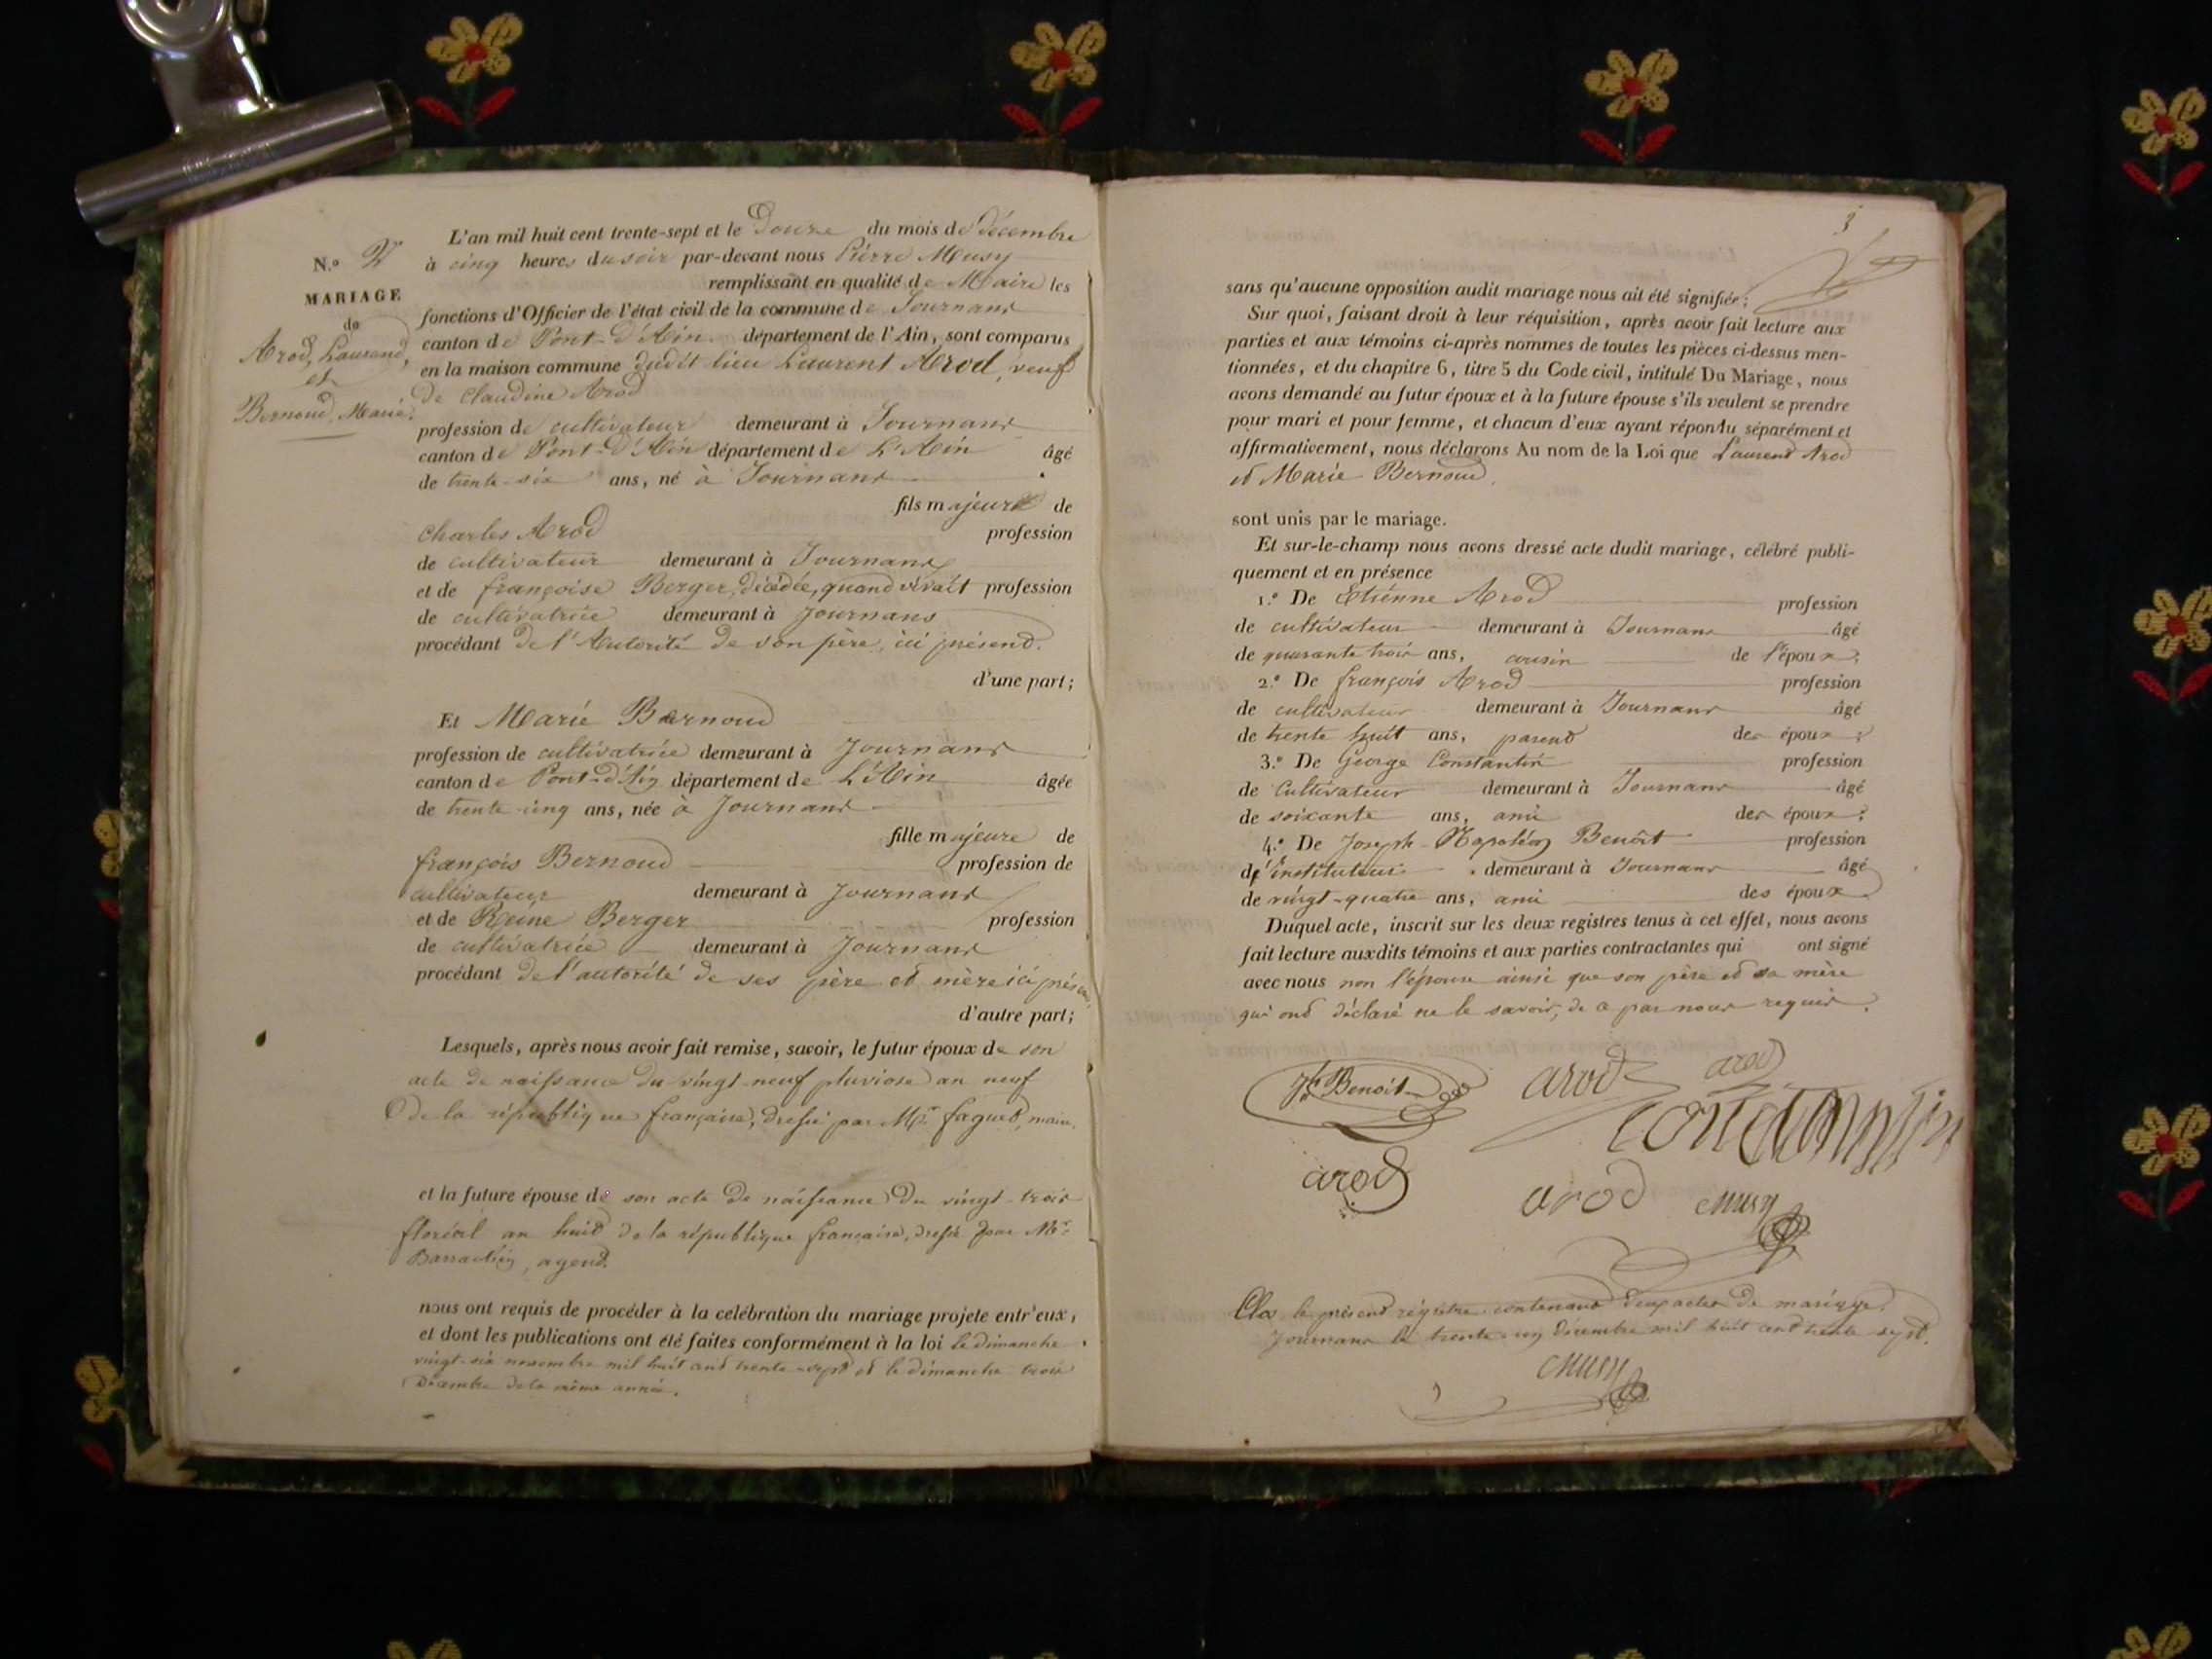 N.o 2
MARIAGE
de
Arod, Laurend,
et
Bernoud, Marie.
L'an mil huit cent trente-sept et le Douze du mois de décembre
à cinq heures du soir par-devant nous Pierre Musy
remplissant en qualité de Maire les
fonctions d'Officier de l'état civil de la commune de Journans
canton de Pont-d'Ain département de l'Ain, sont comparus
en la maison commune dudit lieu Laurent Arod, veuf
de Claudine Arod
profession de cultivateur demeurant à Journans
canton de Pont-d'Ain département de L'Ain âgé
de trente-six ans, né à Journans
fils majeur de
Charles Arod profession
de cultivateur demeurant à Journans
et de françoise Berger, décédée, quand vivait profession
de cultivatrice demeurant à Journans
procédant de l'Autorité de son père, ici présend.
d'une part;
Et Marie Bernoud
profession de cultivatrice demeurant à Journans
canton de Pont-d'Ain département de L'Ain âgée
de trente-cinq ans, née à Journans
fille majeure de
françois Bernoud profession de
cultivateur demeurant à Journans
et de Reine Berger profession
de cultivatrice demeurant à Journans
procédant de l'autorité de ses père et mère ici
d'autre part;
Lesquels, après nous avoir fait remise, savoir, le futur époux de son
acte de naissance du vingt-neuf pluviose an neuf
de la république française, dressé par Mr. faguet, maire.
et la future épouse de son acte de naissance du vingt-trois
floréal an huit de la république française, dressé par Mr.
agend.
nous ont requis de procéder à la celébration du mariage projete entr'eux,
et dont les publications ont été faites conformément à la loi le dimanche
vingt-six novembre mil huit cend trente-sept et le dimanche trois
décembre de la même année.
3
sans qu'aucune opposition audit mariage nous ait été signifiée;
Sur quoi, faisant droit à leur réquisition, après avoir fait lecture aux
parties et aux témoins ci-après nommes de toutes les pièces ci-dessus men-
tionnées, et du chapitre 6, titre 5 du Code civil, intitulé Du Mariage, nous
avons demandé au futur époux et à la future épouse s'ils veulent se prendre
pour mari et pour femme, et chacun d'eux ayant répondu séparément et
affirmativement, nous déclarons Au nom de la Loi que Laurend Arod
et Marie Bernoud.
sont unis par le mariage.
Et sur-le-champ nous avons dressé acte dudit mariage, célébré publi-
quement et en présence
1.o De Etiénne Arod profession
de cultivateur demeurant à Journans âgé
de quarante trois ans, cousin de l'époux;
2.o De françois Arod profession
de cultivateur demeurant à Journans âgé
de trente huit ans, parend des époux;
3.o De George Constantin profession
de Cultivateur demeurant à Journans âgé
de soixante ans, ami des époux;
4.o De Joseph-Napoléon Benoît profession
d'instituteur demeurant à Journans âgé
de vingt-quatre ans, ami des époux
Duquel acte, inscrit sur les deux registres tenus à cet effet, nous avons
fait lecture auxdits témoins et aux parties contractantes qui ont signé
avec nous non l'épouse ainsi que son père et sa mère
qui ond déclaré ne le savoir, de ce par nous requis.
Benoit arod arod
constantin
arod arod Musy
Clos le présend régistre contenand deux actes de mariage.
Journans le trente-un décembre mil huit cend trente sept.
Musy